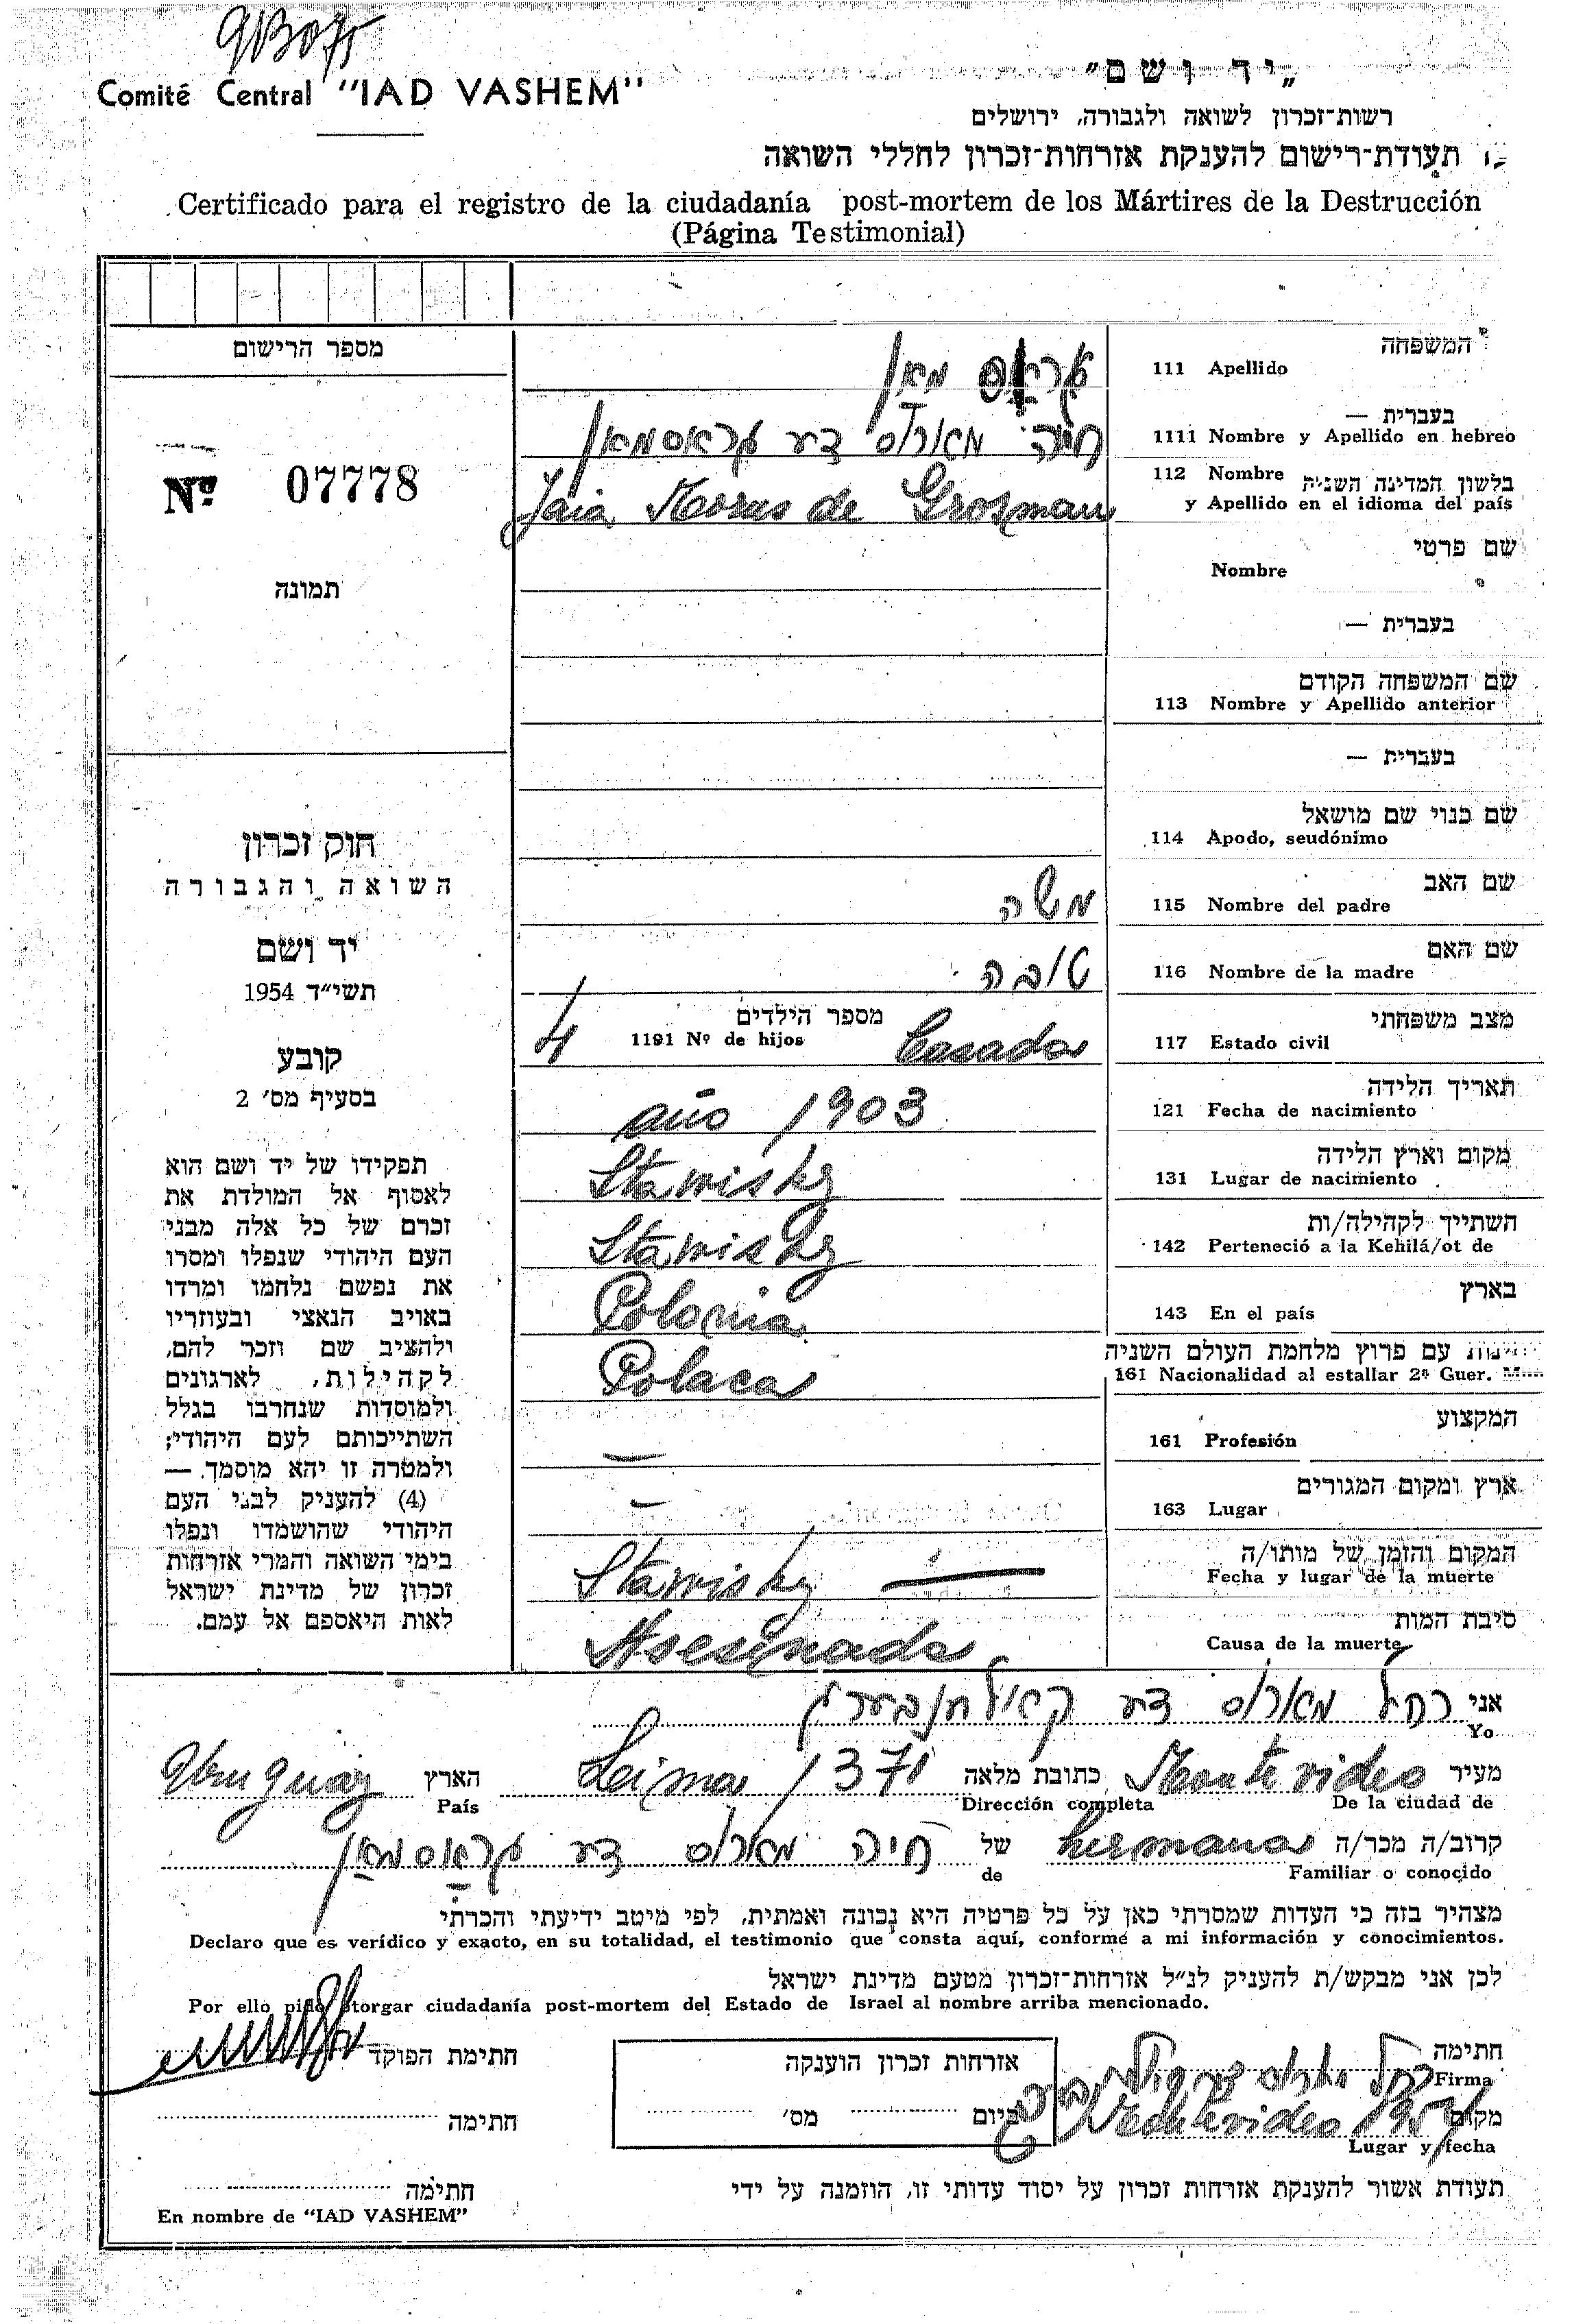 Comité Central "IAD VASHEM"
„יד ושם"
רשות־זכרון לשואה ולגבורה, ירושלים
תעודת־רישום להענקת אזרחות־זכרון לחללי השואה
Certificado para el registro de la ciudadanía post-mortem de los Mártires de la Destrucción
(Página Testimonial)
מספר הרישום
Nº 07778
תמונה
חוק זכרון
השואה והגבורה
יד ושם
תשי״ד 1954
קובע
בסעיף מס׳ 2
תפקידו של יד ושם הוא
לאסוף אל המולדת את
זכרם של כל אלה מבני
העם היהודי שנפלו ומסרו
את נפשם נלחמו ומרדו
באויב הנאצי ובעוזריו
ולהציב שם וזכר להם,
לקהילות, לארגונים
ולמוסדות שנחרבו בגלל
השתייכותם לעם היהודי;
ולמטרה זו יהא מוסמך. —
(4) להעניק לבני העם
היהודי שהושמדו ונפלו
בימי השואה והמרי אזרחות
זכרון של מדינת ישראל
לאות היאספם אל עמם.
המשפחה
111 Apellido
בעברית —
1111 Nombre y Apellido en hebreo
חיה מארוס דע גראסמאן
112 Nombre בלשון המדינה השנית
y Apellido en el idioma del país
Jaia Morus de Grosman
שם פרטי
Nombre
בעברית —
שם המשפחה הקודם
113 Nombre y Apellido anterior
בעברית —
שם כנוי שם מושאל
114 Apodo, seudónimo
שם האב
115 Nombre del padre
משה
שם האם
116 Nombre de la madre
טובה
מצב משפחתי
117 Estado civil
Casada
מספר הילדים
1191 Nº de hijos
4
תאריך הלידה
121 Fecha de nacimiento
año 1903
מקום וארץ הלידה
131 Lugar de nacimiento
Stawisky
השתייך לקהילה/ות
142 Perteneció a la Kehilá/ot de
Stawisky
בארץ
143 En el país
Polonia
עם פרוץ מלחמת העולם השניה
161 Nacionalidad al estallar 2ª Guer.
Polaca
המקצוע
161 Profesión
—
ארץ ומקום המגורים
163 Lugar
—
המקום והזמן של מותו/ה
Fecha y lugar de la muerte
Stawisky —
סיבת המות
Causa de la muerte
Asesinada
אני רחל מארוס דע
Yo
מעיר Montevideo כתובת מלאה Lima 1371 הארץ Uruguay
De la ciudad de Dirección completa País
קרוב/ה מכר/ה hermana של חיה מארוס דע גראסמאן
Familiar o conocido de
מצהיר בזה כי העדות שמסרתי כאן על כל פרטיה היא נכונה ואמתית, לפי מיטב ידיעתי והכרתי
Declaro que es verídico y exacto, en su totalidad, el testimonio que consta aquí, conforme a mi información y conocimientos.
לכן אני מבקש/ת להעניק לנ״ל אזרחות־זכרון מטעם מדינת ישראל
Por ello pido otorgar ciudadanía post-mortem del Estado de Israel al nombre arriba mencionado.
חתימה
Firma
מקום Montevideo
Lugar y fecha
אזרחות זכרון הוענקה
ביום מס׳
חתימת הפוקד
חתימה
חתימה
En nombre de "IAD VASHEM"
תעודת אשור להענקת אזרחות זכרון על יסוד עדותי זו, הוזמנה על ידי